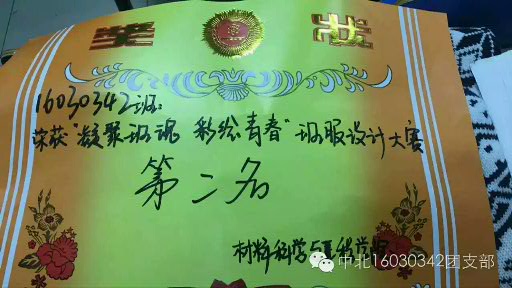 奖状
16030342班:
荣获"凝聚班魂 彩绘青春"班服设计大赛
第二名
材料科学与工程学院
中北16030342团支部